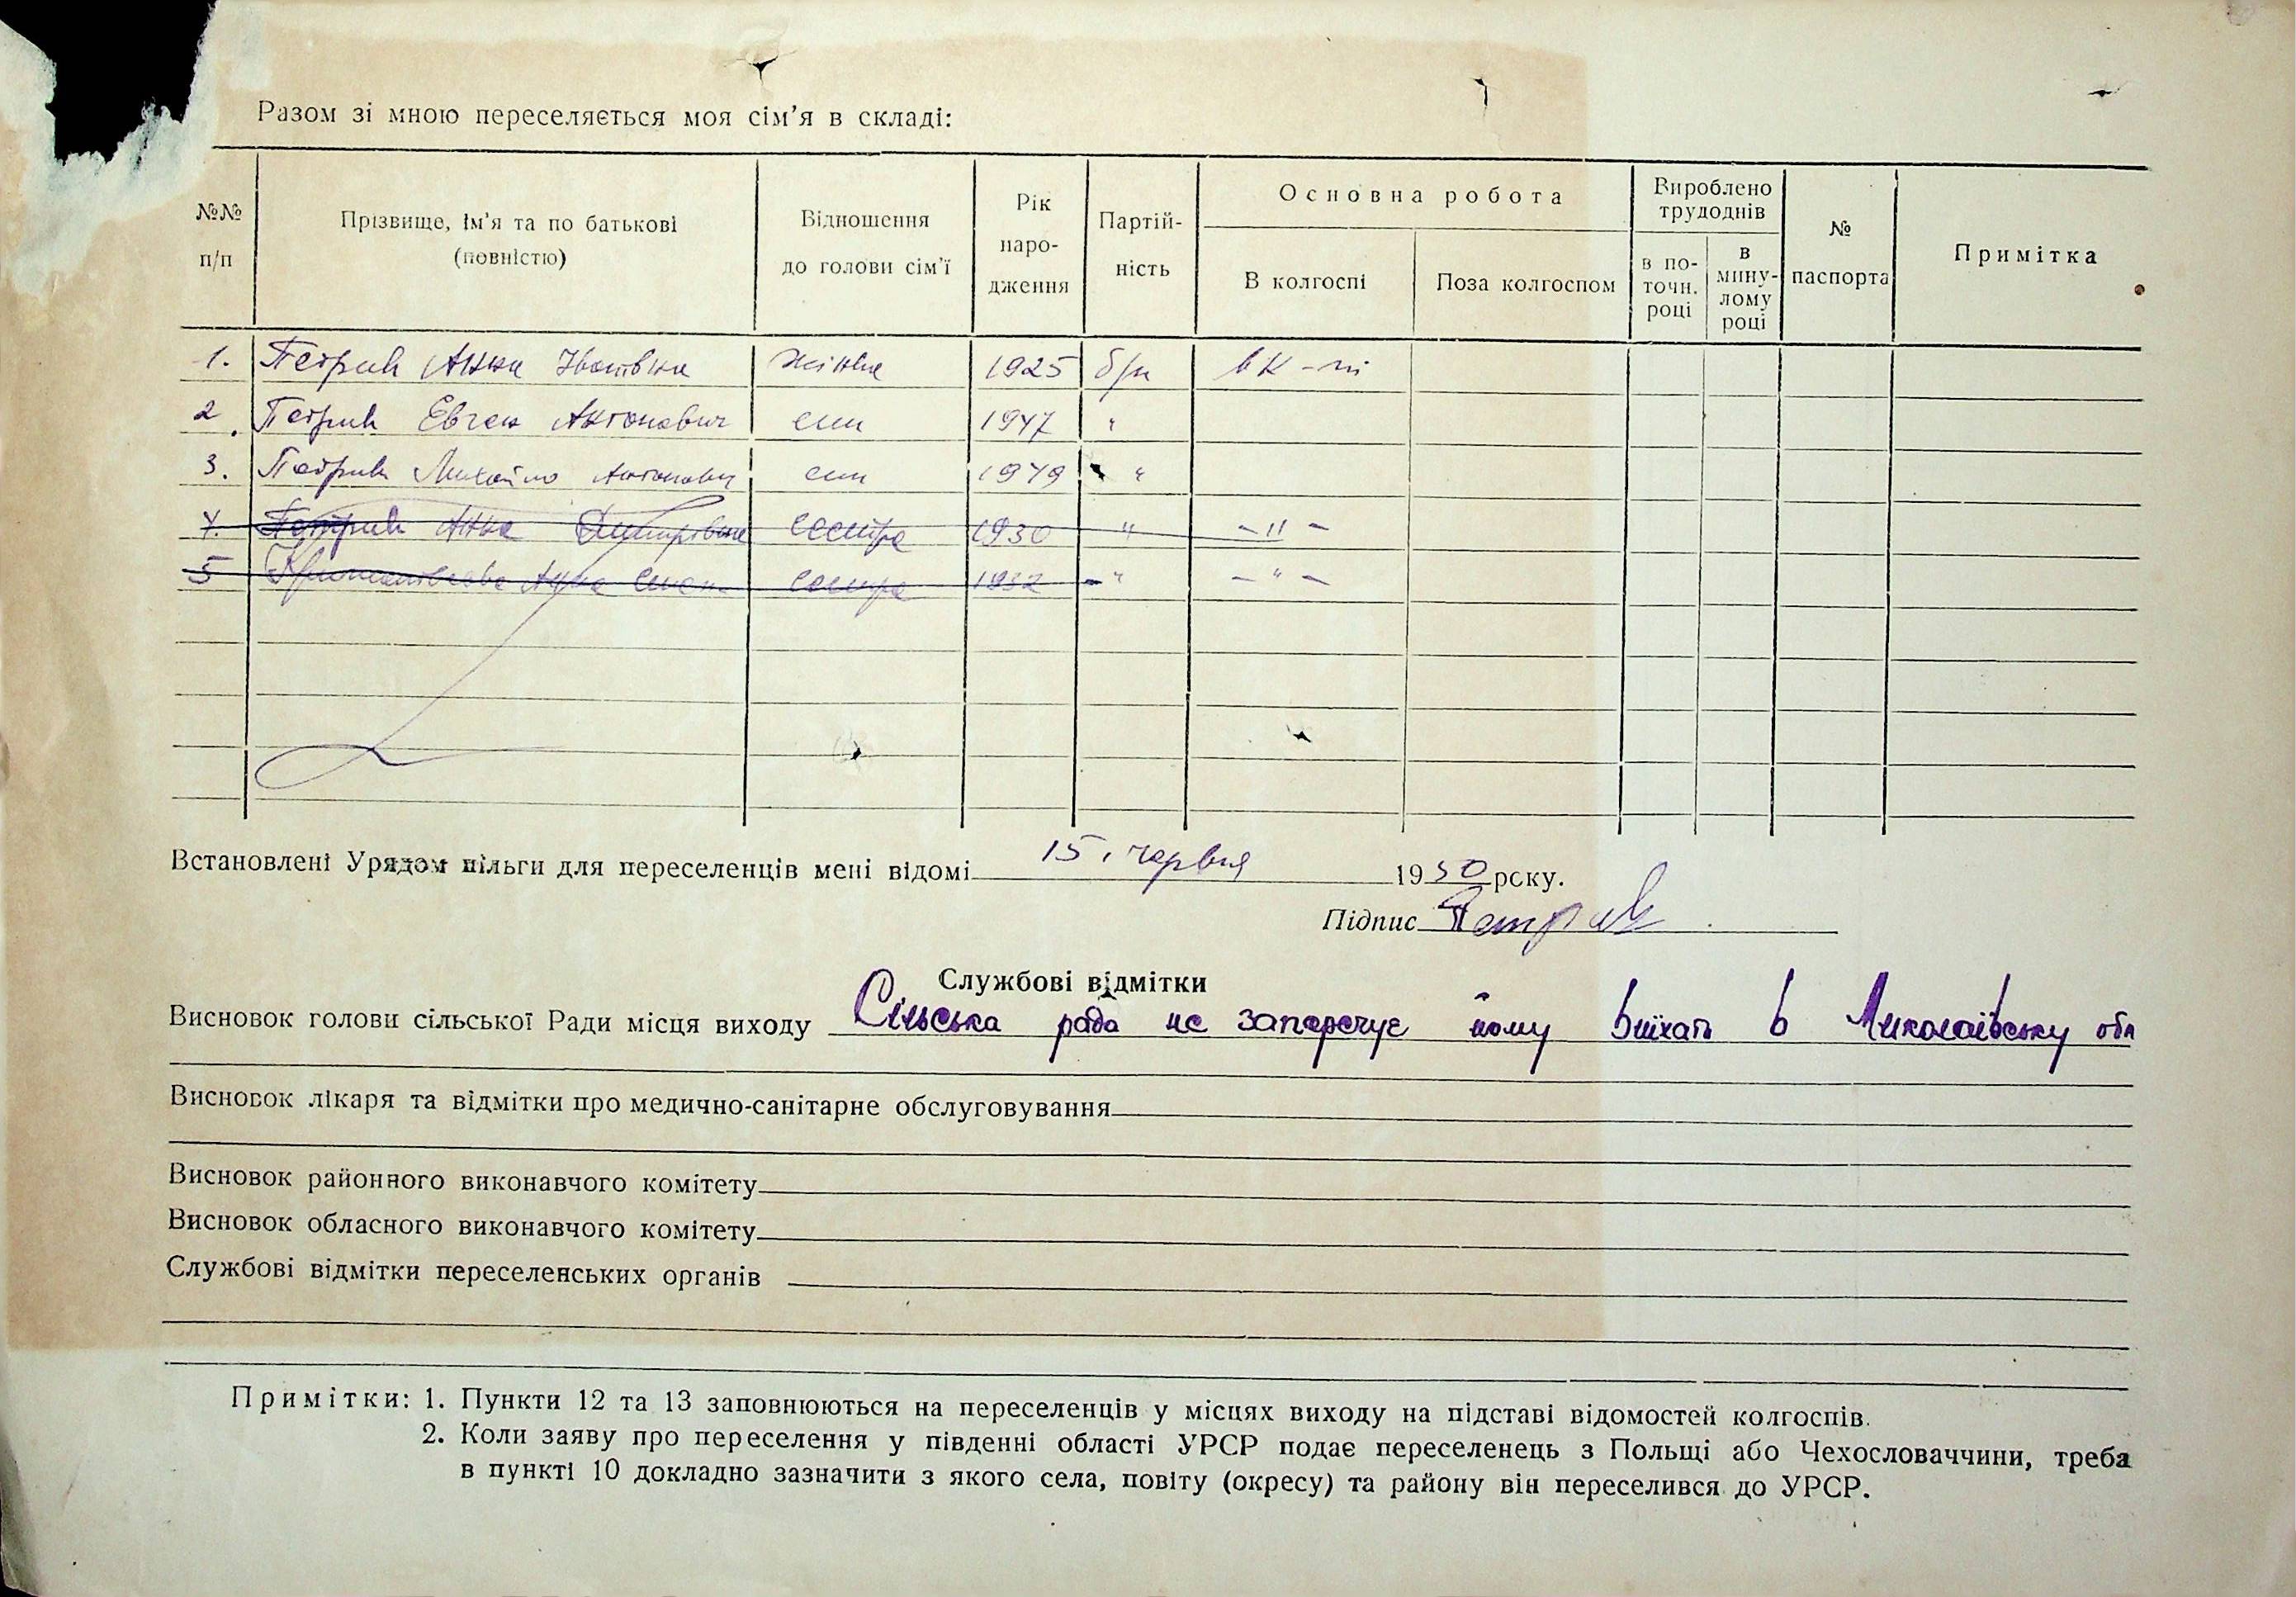 Разом зі мною переселяється моя сім'я в складі:
№№ п/п
Прізвище, ім'я та по батькові (повністю)
Відношення до голови сім'ї
Рік наро-дження
Партій-ність
Основна робота
В колгоспі
Поза колгоспом
Вироблено трудоднів
в по-точн. році
в мину-лому році
№ паспорта
Примітка
1. Петрив Анна Іванівна жінка 1925 б/п в к-пі
2. Петрив Евген Антонович син 1947 "
3. Петрив Михайло Антонович син 1949 "
4. Петрив Анна Дмитрівна сестра 1930 " -"-
5 Анна сестра 1932 -" -"-
Встановлені Урядом пільги для переселенців мені відомі 15, червня 1950 року.
Підпис Петрив
Службові відмітки
Висновок голови сільської Ради місця виходу Сільська рада не заперечує йому виїхать в Миколаївську обл
Висновок лікаря та відмітки про медично-санітарне обслуговування
Висновок районного виконавчого комітету
Висновок обласного виконавчого комітету
Службові відмітки переселенських органів
Примітки: 1. Пункти 12 та 13 заповнюються на переселенців у місцях виходу на підставі відомостей колгоспів.
2. Коли заяву про переселення у південні області УРСР подає переселенець з Польщі або Чехословаччини, треба
в пункті 10 докладно зазначити з якого села, повіту (окресу) та району він переселився до УРСР.